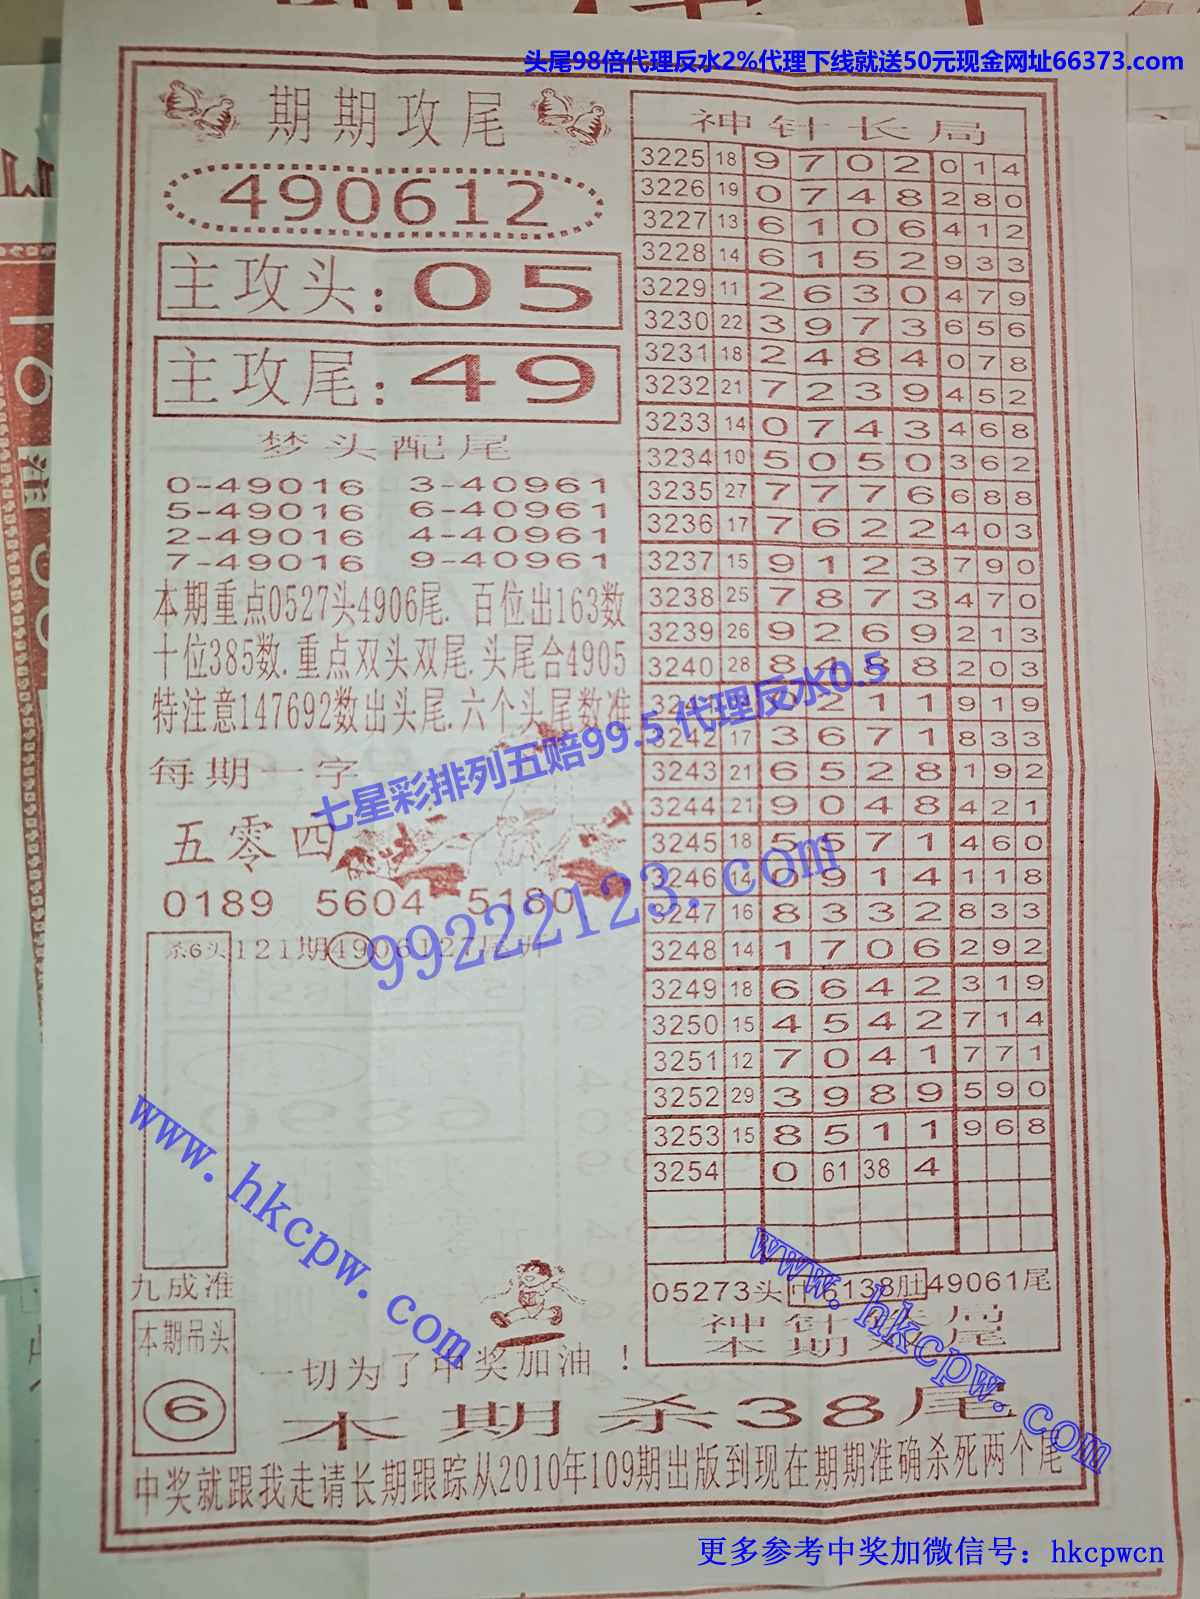 头尾98倍代理反水2%代理下线就送50元现金网址66373.com
期期攻尾
490612
主攻头:05
主攻尾:49
梦头配尾
0-49016 3-40961
5-49016 6-40961
2-49016 4-40961
7-49016 9-40961
本期重点0527头4906尾.百位出163数
十位385数.重点双头双尾.头尾合4905
特注意147692数出头尾.六个头尾数准
每期一字
五零四
0189 5604 5180
杀6头121期4906127尾
九成准
本期吊头
6
一切为了中奖加油!
神针长局
3225 18 9 7 0 2 0 1 4
3226 19 0 7 4 8 2 8 0
3227 13 6 1 0 6 4 1 2
3228 14 6 1 5 2 9 3 3
3229 11 2 6 3 0 4 7 9
3230 22 3 9 7 3 6 5 6
3231 18 2 4 8 4 0 7 8
3232 21 7 2 3 9 4 5 2
3233 14 0 7 4 3 4 6 8
3234 10 5 0 5 0 3 6 2
3235 27 7 7 7 6 6 8 8
3236 17 7 6 2 2 4 0 3
3237 15 9 1 2 3 7 9 0
3238 25 7 8 7 3 4 7 0
3239 26 9 2 6 9 2 1 3
3240 28 8 4 8 8 2 0 3
0 2 1 1 9 1 9
3242 17 3 6 7 1 8 3 3
3243 21 6 5 2 8 1 9 2
3244 21 9 0 4 8 4 2 1
3245 18 5 5 7 1 4 6 0
3246 14 0 9 1 4 1 1 8
3247 16 8 3 3 2 8 3 3
3248 14 1 7 0 6 2 9 2
3249 18 6 6 4 2 3 1 9
3250 15 4 5 4 2 7 1 4
3251 12 7 0 4 1 7 7 1
3252 29 3 9 8 9 5 9 0
3253 15 8 5 1 1 9 6 8
3254 0 61 38 4
05273头中6138肚49061尾
神针长局
本期杀尾
本期杀38尾
中奖就跟我走请长期跟踪从2010年109期出版到现在期期准确杀死两个尾
七星彩排列五赔99.5 代理反水0.5
99222123.com
www.hkcpw.com
www.hkcpw.com
更多参考中奖加微信号：hkcpwcn